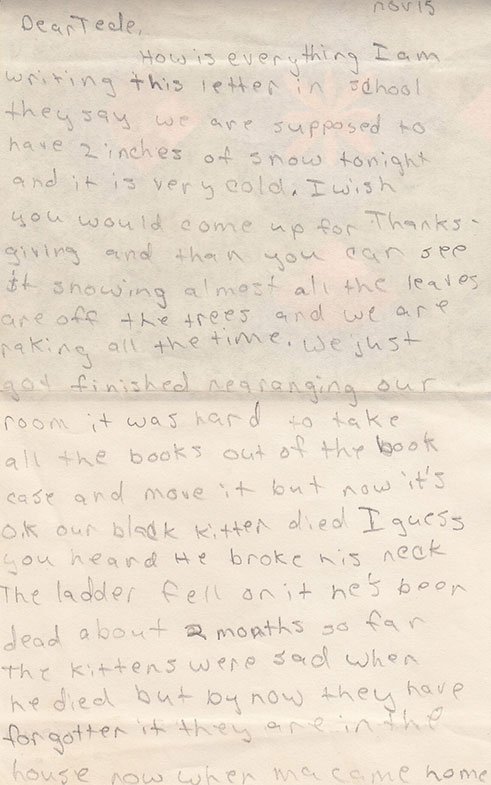 nov 15
Dear Tede,
How is everything I am
writing this letter in school
they say we are supposed to
have 2 inches of snow tonight
and it is very cold. I wish
you would come up for Thanks-
giving and than you can see
it snowing almost all the leaves
are off the trees and we are
raking all the time. We just
got finished rearanging our
room it was hard to take
all the books out of the book
case and move it but now it's
O.K our black kitten died I guess
you heard He broke his neck
The ladder fell on it he's been
dead about 2 months so far
The kittens were sad when
he died but by now they have
forgotten it they are in the
house now when ma came home